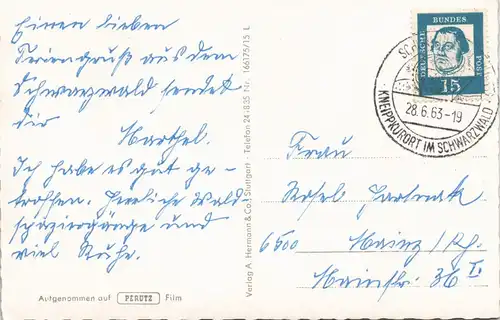 Einen lieben
Feriengruß aus dem
Schwarzwald sendet
dir
Ich habe es gut ge-
troffen. Herrliche Wald
spaziergänge und
viel Ruhe.
Aufgenommen auf PERUTZ Film
Verlag A. Hermann & Co., Stuttgart - Telefon 24 18 35 Nr. 166175/15 L
DEUTSCHE BUNDES
15
28.6.63-19
KNEIPPKURORT IM SCHWARZWALD
Frau
Rosel
6500 Mainz/Rh.
Mainstr. 36 I.